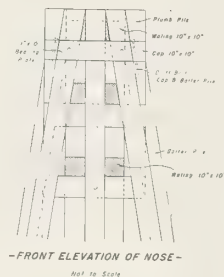 Plumb Pile
Waling 10" x 10"
Cap 10" x 10"
Cap & Batter Pile
Batter Pile
Waling 10" x 10"
-FRONT ELEVATION OF NOSE-
Not to Scale